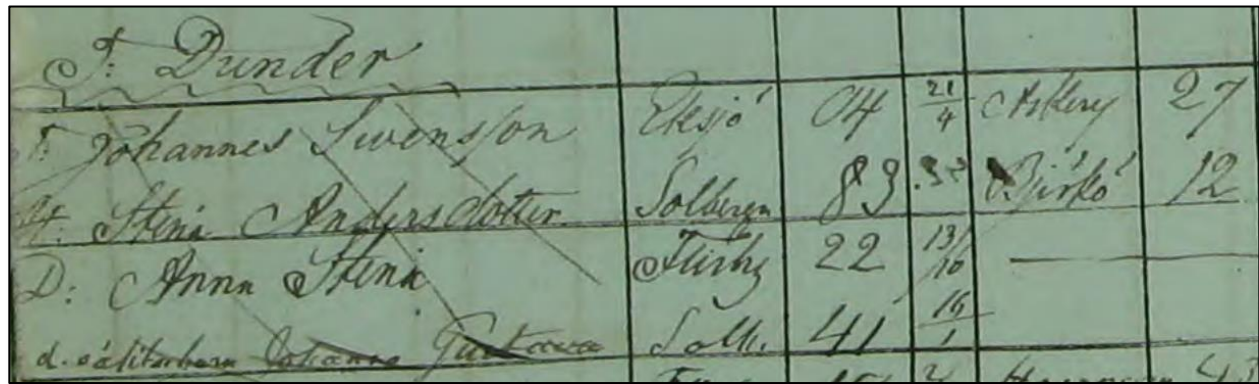 T: Dunder
T: Johannes Swensson Eksjö 04 21/4 Askery 27
H: Stina Andersdotter Solberga 83 Björkö 12
D: Anna Stina Flisby 22 13/10
d. oäkta barn Johanna Gustava Solb. 41 16/1